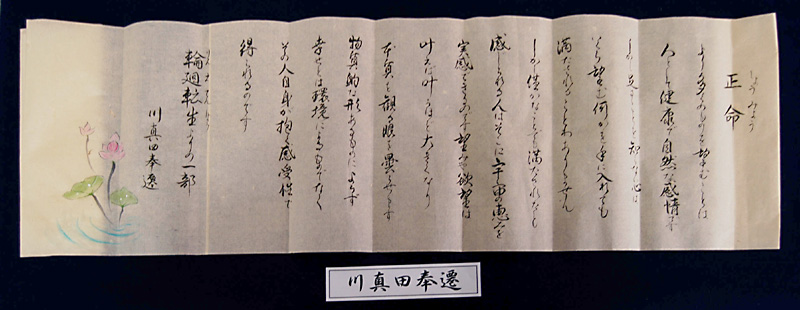 しょうみょう
正命
より多くのものを望むことは
人として健康で自然な感情です
しかし足ることを知らない心は
いくら望む何かを手に入れても
満たされることはありません
しかし僅かなことでも満たされなくても
感じられる人はそこに宇宙の恵みを
実感できるのです 望みや欲望は
叶えば叶うほど大きくなり
本質を観る眼を曇らせます
物質的な形あるものによらず
幸せとは環境によるものでなく
その人自身が抱く感受性で
得られるのです
輪廻転生よりの一部
川真田奉遷
川真田奉遷